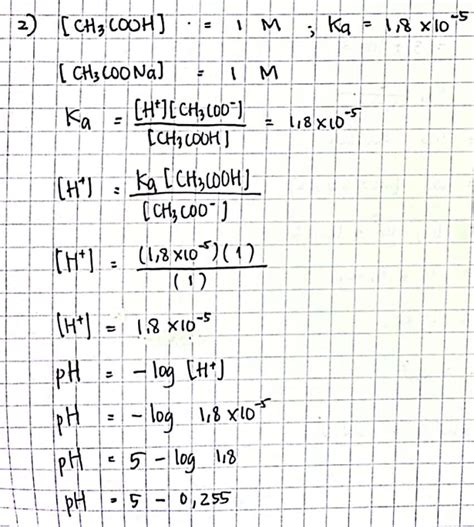 2) [CH₃COOH] = 1 M ; Ka = 1,8 × 10⁻⁵
[CH₃COONa] = 1 M
Ka = [H⁺][CH₃COO⁻] / [CH₃COOH] = 1,8 × 10⁻⁵
[H⁺] = Ka [CH₃COOH] / [CH₃COO⁻]
[H⁺] = (1,8 × 10⁻⁵) (1) / (1)
[H⁺] = 1,8 × 10⁻⁵
pH = – log [H⁺]
pH = – log 1,8 × 10⁻⁵
pH = 5 – log 1,8
pH = 5 – 0,255